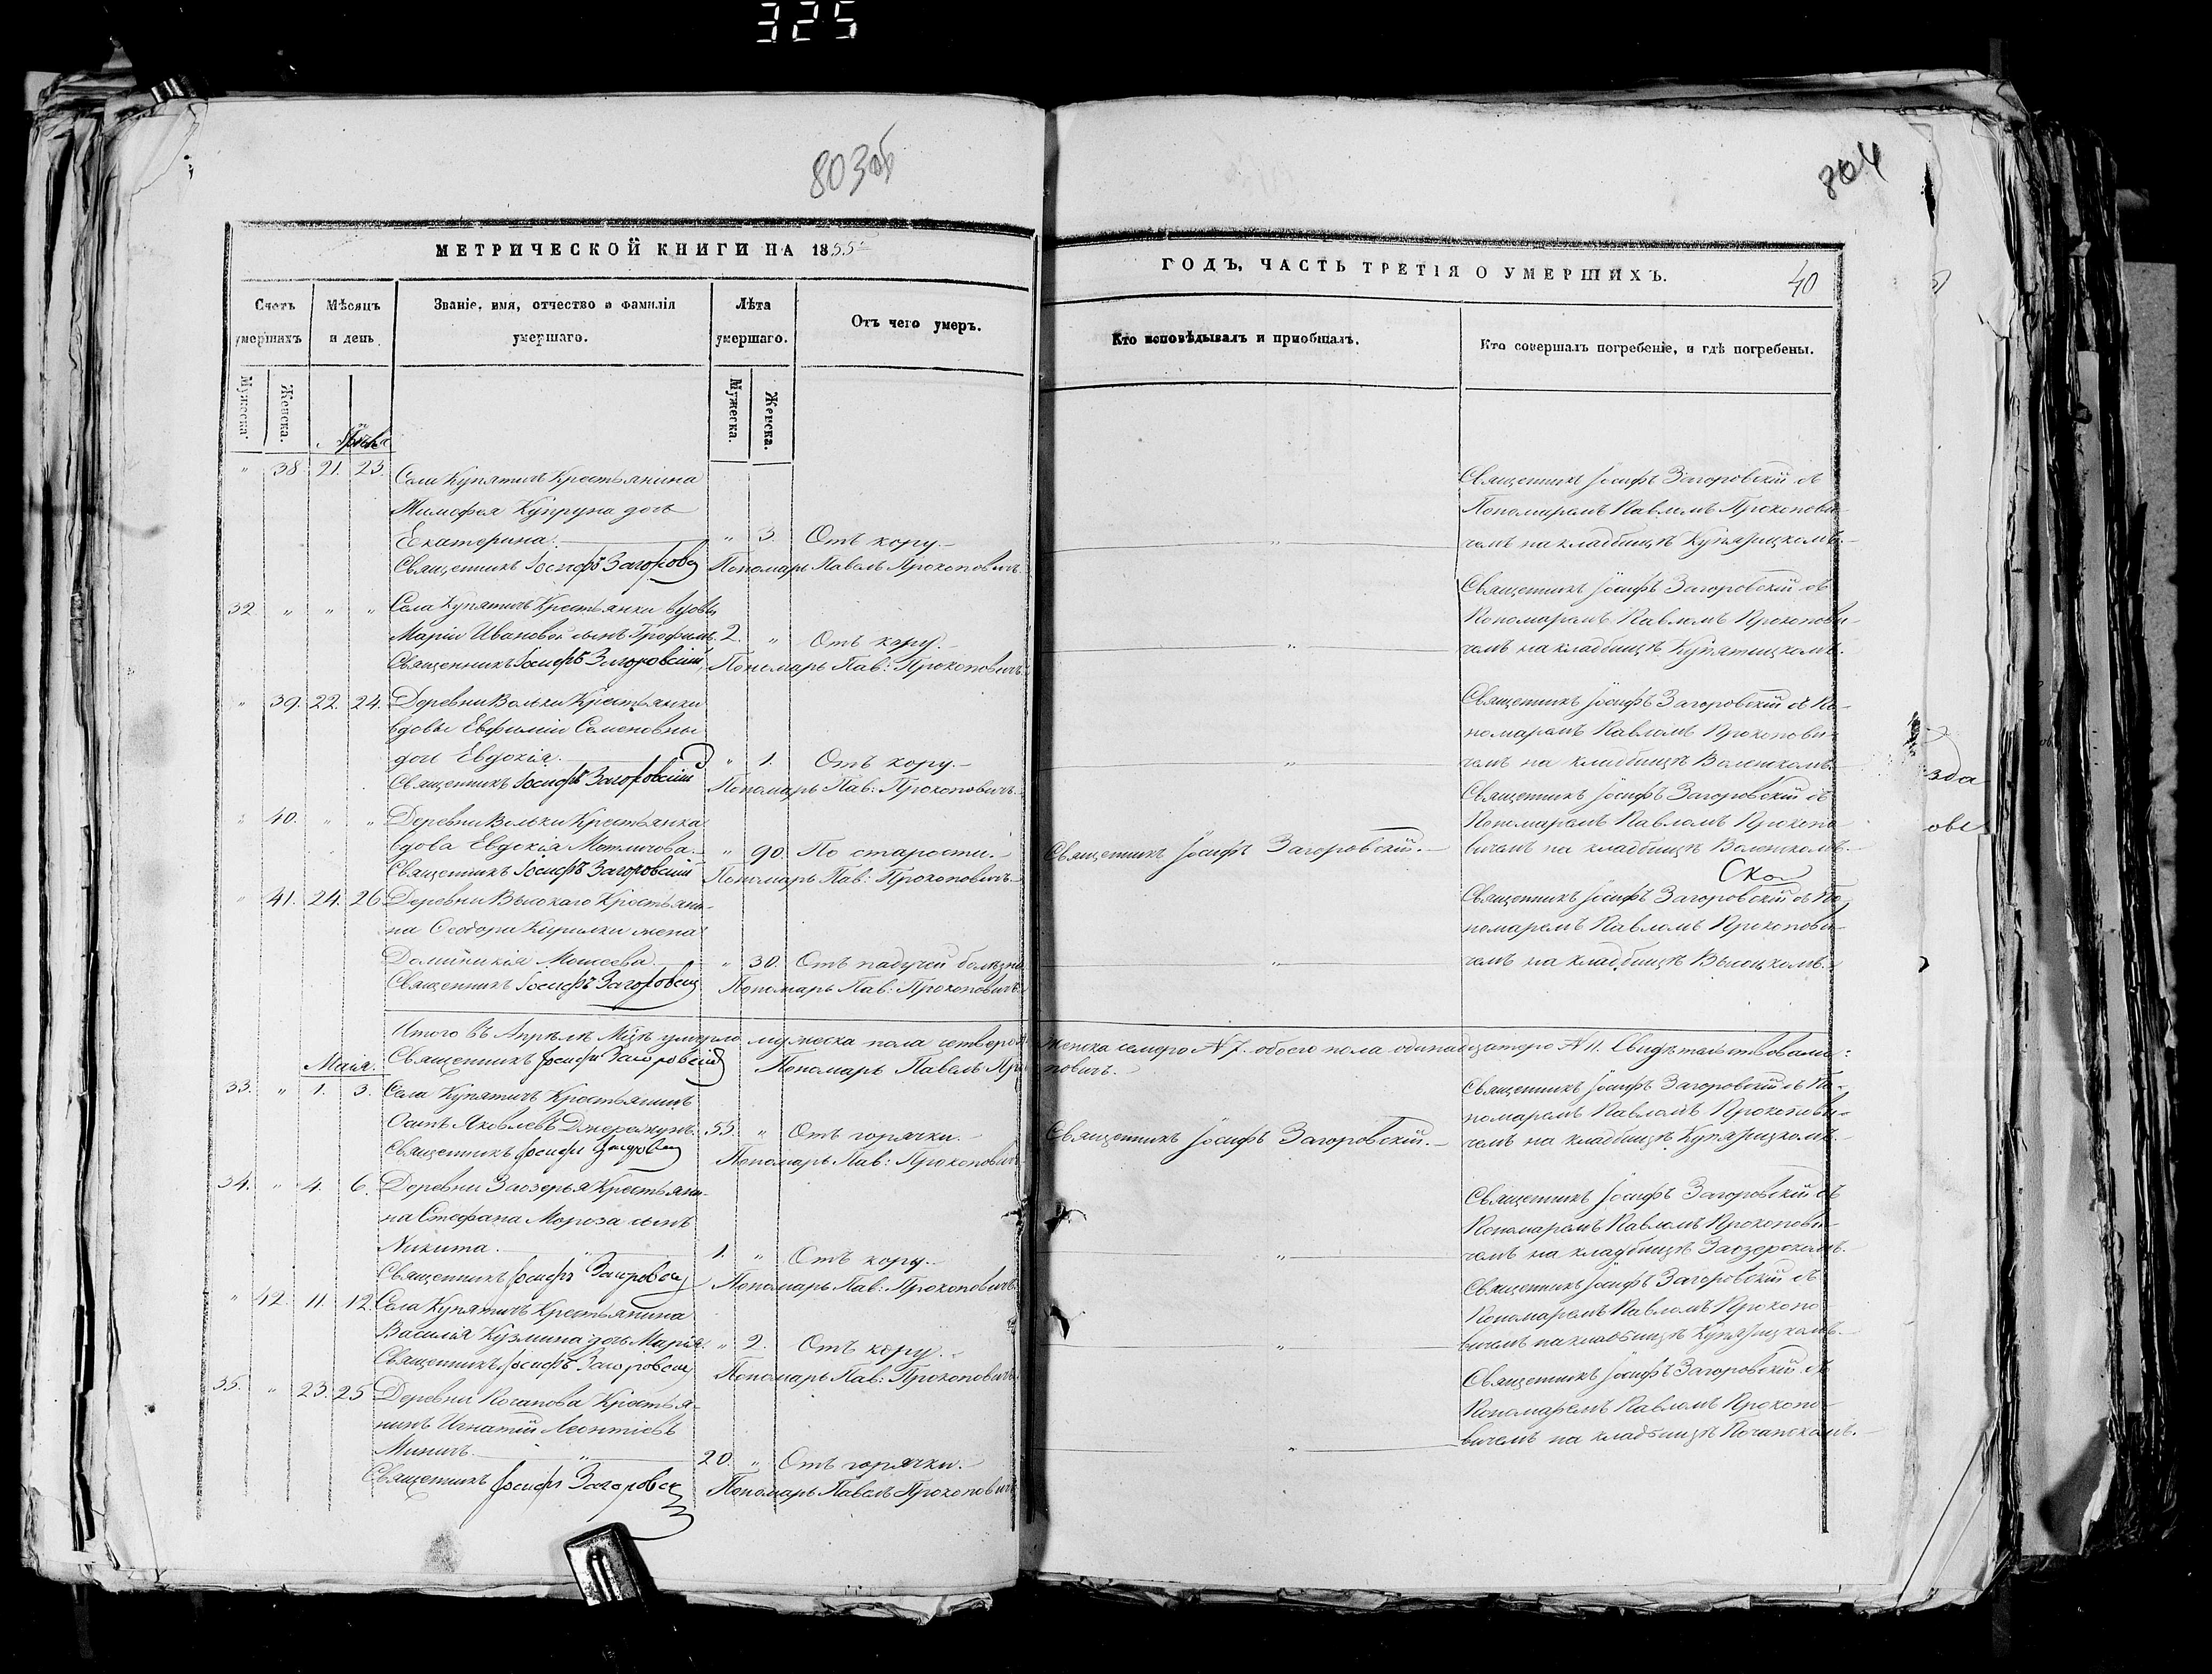 325
803об
804
МЕТРИЧЕСКОЙ КНИГИ НА 1855
ГОДЪ, ЧАСТЬ ТРЕТІЯ О УМЕРШИХЪ.
40
Счетъ умершихъ
Мѣсяцъ и день
Званіе, имя, отчество и фамилія умершаго.
Лѣта умершаго.
Отъ чего умеръ.
Кто исповѣдывалъ и пріобщалъ.
Кто совершалъ погребеніе, и гдѣ погребены.
Мужеска. Женска.
Мужеска. Женска.
" 38. 21. 23. Села Купятичъ Крестьянина
Тимофея Купруна дочь
Екатерина. " 3. Отъ кору.
Священникъ Іосифъ Загоровскій Пономарь Павелъ Прокоповичъ.
Священникъ Іосифъ Загоровскій съ
Пономаремъ Павломъ Прокопови-
чемъ на кладбищѣ Купятицкомъ.
32 " " " Села Купятичъ Крестьянки вдовы
Маріи Ивановой сынъ Трофимъ. 2. " Отъ кору.
Священникъ Іосифъ Загоровскій, Пономарь Пав: Прокоповичъ
Священникъ Іосифъ Загоровскій съ
Пономаремъ Павломъ Прокопови-
чемъ на кладбищѣ Купятицкомъ.
" 39. 22. 24. Деревни Вольки Крестьянки
вдовы Евфиміи Семеновны
дочь Евдокія. " 1. Отъ кору.
Священникъ Іосифъ Загоровскій Пономарь Пав: Прокоповичъ.
Священникъ Іосифъ Загоровскій съ По-
номаремъ Павломъ Прокопови-
чемъ на кладбищѣ Волецкомъ.
" 40. " " Деревни Вольки Крестьянка
вдова Евдокія " 90. По старости.
Священникъ Іосифъ Загоровскій.
Священникъ Іосифъ Загоровскій Пономарь Пав: Прокоповичъ.
Священникъ Іосифъ Загоровскій съ
Пономаремъ Павломъ Прокопо
вичемъ на кладбищѣ Волецкомъ.
" 41. 24. 26 Деревни Высокаго Крестьяни-
на Ѳеодора Кирилки жена
Доминикія Моисеева. " 30. Отъ падучей болѣзни
Священникъ Іосифъ Загоровскій Пономарь Пав: Прокоповичъ.
Священникъ Іосифъ Загоровскій съ По-
номаремъ Павломъ Прокопови-
чемъ на кладбищѣ Высоцкомъ.
Итого въ Апрѣлѣ Мцѣ умерло мужеска пола четверо женска семеро № 7. обоего пола одинадцатеро № 11. Свидѣтельствовали:
Священникъ Іосифъ Загоровскій Пономарь Павелъ Прокоповичъ.
Маія.
33. " 1. 3. Села Купятичъ Крестьянинъ
Яковлевъ 55. " Отъ горячки.
Священникъ Іосифъ Загоровскій.
Священникъ Іосифъ Загоровскій Пономарь Пав: Прокоповичъ
Священникъ Іосифъ Загоровскій съ По-
номаремъ Павломъ Прокопови-
чемъ на кладбищѣ Купятицкомъ.
34. " 4. 6. Деревни Заозерья Крестьяни-
на Стефана Мороза сынъ
Никита. 1. " Отъ кору.
Священникъ Іосифъ Загоровскій Пономарь Пав: Прокоповичъ.
Священникъ Іосифъ Загоровскій съ
Пономаремъ Павломъ Прокопови-
чемъ на кладбищѣ Заозерскомъ.
" 42. 11. 12. Села Купятичъ Крестьянина
Василія Кузмина дочь Марія. " 2. Отъ кору.
Священникъ Іосифъ Загоровскій Пономарь Пав: Прокоповичъ.
Священникъ Іосифъ Загоровскій съ
Пономаремъ Павломъ Прокопо
вичемъ на кладбищѣ Купятицкомъ.
35. " 23. 25 Деревни Почапова Крестья-
нинъ Игнатій Леонтіевъ
Миничъ. 20. " Отъ горячки.
Священникъ Іосифъ Загоровскій Пономарь Павелъ Прокоповичъ
Священникъ Іосифъ Загоровскій съ
Пономаремъ Павломъ Прокопо-
вичемъ на кладбищѣ Почапскомъ.